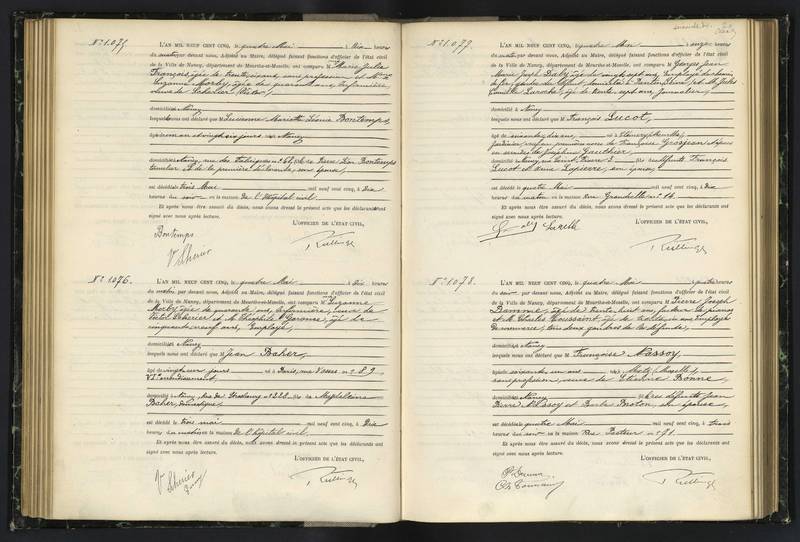 N° 1.075
L'AN MIL NEUF CENT CINQ, le quatre Mai à Dix heures
du matin par devant nous, Adjoint au Maire, délégué faisant fonctions d'officier de l'état civil
de la Ville de Nancy, département de Meurthe-et-Moselle, ont comparu M
François, âgée de trente ans, sans profession et Mme
Suzanne Morby, âgée de quarante ans, infirmière,
veuve de Scherier, Victor,
domicilié à Nancy
lesquels nous ont déclaré que Lucienne Mariette Léonie Bontemps,
âgée de un an et vingt six jours née à Nancy
domiciliée à Nancy, rue des Fabriques n° 62, fille de Pierre Léon Bontemps
son épouse,
est décédé le trois Mai mil neuf cent cinq, à Dix
heures du soir en la maison de l'Hôpital civil.
Et après nous être assuré du décès, nous avons dressé le présent acte que les déclarants ont
signé avec nous après lecture.
L'OFFICIER DE L'ÉTAT CIVIL,
Bontemps
Ve Scherier
N° 1076.
L'AN MIL NEUF CENT CINQ, le quatre Mai à Dix heures
du matin par devant nous, Adjoint au Maire, délégué faisant fonctions d'officier de l'état civil
de la Ville de Nancy, département de Meurthe-et-Moselle, ont comparu M Suzanne
Morby âgée de quarante ans, infirmière, veuve de
Victor Scherier et M Théophile Garonne, âgé de
cinquante neuf ans, Employé,
domiciliés à Nancy
lesquels nous ont déclaré que M Jean Baher,
âgé de vingt un jours né à Paris, rue n° 89
arrondissement,
domicilié à Nancy, Rue de Strasbourg n° 228 fils de Magdeleine
Baher, domestique,
est décédé le trois mai mil neuf cent cinq, à Dix
heures du matin en la maison de l'hôpital civil,
Et après nous être assuré du décès, nous avons dressé le présent acte que les déclarants ont
signé avec nous après lecture.
L'OFFICIER DE L'ÉTAT CIVIL,
Ve Scherier
N° 1.077.
L'AN MIL NEUF CENT CINQ, le quatre Mai à onze heures
du matin, par devant nous, Adjoint au Maire, délégué faisant fonctions d'officier de l'état civil
de la Ville de Nancy, département de Meurthe-et-Moselle, ont comparu M Georges Jean
Marie Joseph Baly âgé de vingt sept ans, Employé de chemin
de fer, et M Jules
Camille Laroche, âgé de trente sept ans, Journalier,
domicilié à Nancy
lesquels nous ont déclaré que M François Lucot,
âgé de soixante dix ans, né à
Jardinier, veuf en premières noces de Françoise Grosjean et époux
en secondes de Joséphine Gauthier,
domicilié à Nancy, rue Saint, Pierre 3 fils des défunts François
Lucot et Anne Lapierre, son épouse,
est décédé le quatre Mai mil neuf cent cinq, à Dix
heures du matin en la maison Rue Grandville n° 14.
Et après nous être assuré du décès, nous avons dressé le présent acte que les déclarants ont
signé avec nous après lecture.
L'OFFICIER DE L'ÉTAT CIVIL,
N° 1.078.
L'AN MIL NEUF CENT CINQ, le quatre Mai à quatre heures
du soir par devant nous, Adjoint au Maire, délégué faisant fonctions d'officier de l'état civil
de la Ville de Nancy, département de Meurthe-et-Moselle, ont comparu M Pierre Joseph
Damme, âgé de trente huit ans, facteur de pianos
et M Charles Toussaint, âgé de ans Employé
de commerce, tous deux gendres de la défunte,
domicilié à Nancy
lesquels nous ont déclaré que M Françoise Massoy
âgée de soixante un ans née à Metz (Moselle),
sans profession, veuve de Bronne,
domiciliée à Nancy fille des défunts Jean
Pierre Massoy et Barbe Breton, son épouse,
est décédée le quatre Mai mil neuf cent cinq, à trois
heures du soir en la maison Rue Pasteur n° 71.
Et après nous être assuré du décès, nous avons dressé le présent acte que les déclarants ont
signé avec nous après lecture.
L'OFFICIER DE L'ÉTAT CIVIL,
Ch Toussaint